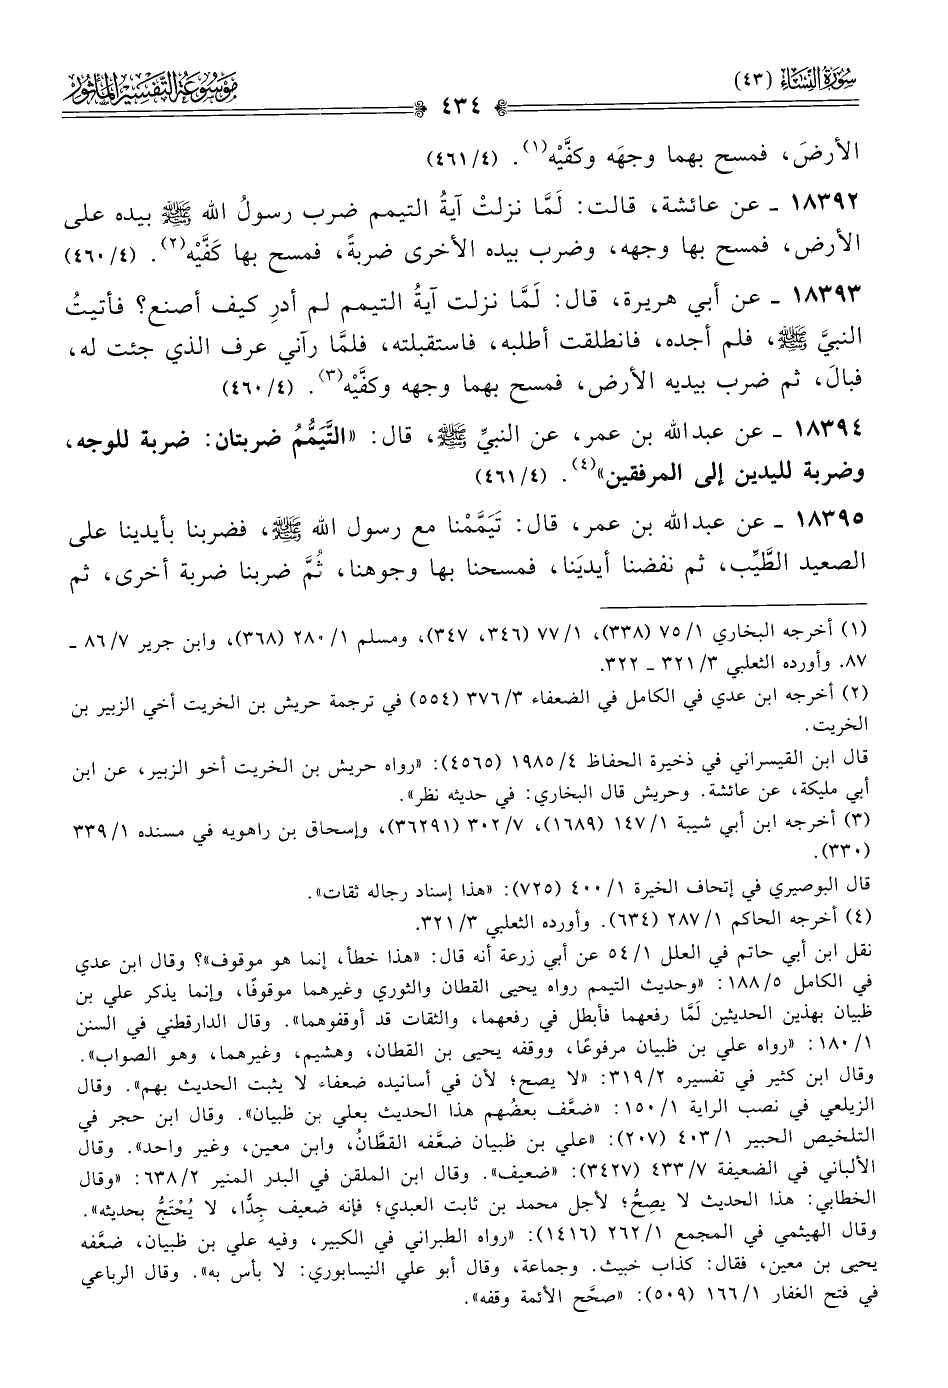 سُورَةُ النِّسَاءِ (٤٣)
٤٣٤
مَوْسُوعَةُ التَّفْسِيرِ المَأْثُورِ
الأرضَ، فمسح بهما وجهَه وكفَّيْه(١). (٤/٤٦١)
١٨٣٩٢ ـ عن عائشة، قالت: لَمَّا نزلتْ آيةُ التيمم ضرب رسولُ الله ﷺ بيده على
الأرض، فمسح بها وجهه، وضرب بيده الأخرى ضربةً، فمسح بها كَفَّيْه(٢). (٤/٤٦٠)
١٨٣٩٣ ـ عن أبي هريرة، قال: لَمَّا نزلت آيةُ التيمم لم أدرِ كيف أصنع؟ فأتيتُ
النبيَّ ﷺ، فلم أجده، فانطلقت أطلبه، فاستقبلته، فلمَّا رآني عرف الذي جئت له،
فبالَ، ثم ضرب بيديه الأرض، فمسح بهما وجهه وكفَّيْه(٣). (٤/٤٦٠)
١٨٣٩٤ ـ عن عبدالله بن عمر، عن النبيِّ ﷺ، قال: «التَّيَمُّمُ ضربتان: ضربة للوجه،
وضربة لليدين إلى المرفقين»(٤). (٤/٤٦١)
١٨٣٩٥ ـ عن عبدالله بن عمر، قال: تَيَمَّمْنا مع رسول الله ﷺ، فضربنا بأيدينا على
الصعيد الطَّيِّب، ثم نفضنا أيديَنا، فمسحنا بها وجوهنا، ثُمَّ ضربنا ضربة أخرى، ثم
(١) أخرجه البخاري ١/٧٥ (٣٣٨)، ١/٧٧ (٣٤٦، ٣٤٧)، ومسلم ١/٢٨٠ (٣٦٨)، وابن جرير ٧/٨٦ ـ
٨٧. وأورده الثعلبي ٣/٣٢١ ـ ٣٢٢.
(٢) أخرجه ابن عدي في الكامل في الضعفاء ٣/٣٧٦ (٥٥٤) في ترجمة حريش بن الخريت أخي الزبير بن
الخريت.
قال ابن القيسراني في ذخيرة الحفاظ ٤/١٩٨٥ (٤٥٦٥): «رواه حريش بن الخريت أخو الزبير، عن ابن
أبي مليكة، عن عائشة. وحريش قال البخاري: في حديثه نظر».
(٣) أخرجه ابن أبي شيبة ١/١٤٧ (١٦٨٩)، ٧/٣٠٢ (٣٦٢٩١)، وإسحاق بن راهويه في مسنده ١/٣٣٩
(٣٣٠).
قال البوصيري في إتحاف الخيرة ١/٤٠٠ (٧٢٥): «هذا إسناد رجاله ثقات».
(٤) أخرجه الحاكم ١/٢٨٧ (٦٣٤). وأورده الثعلبي ٣/٣٢١.
نقل ابن أبي حاتم في العلل ١/٥٤ عن أبي زرعة أنه قال: «هذا خطأ، إنما هو موقوف»؟ وقال ابن عدي
في الكامل ٥/١٨٨: «وحديث التيمم رواه يحيى القطان والثوري وغيرهما موقوفًا، وإنما يذكر علي بن
ظبيان بهذين الحديثين لَمَّا رفعهما فأبطل في رفعهما، والثقات قد أوقفوهما». وقال الدارقطني في السنن
١/١٨٠: «رواه علي بن ظبيان مرفوعًا، ووقفه يحيى بن القطان، وهشيم، وغيرهما، وهو الصواب».
وقال ابن كثير في تفسيره ٢/٣١٩: «لا يصح؛ لأن في أسانيده ضعفاء لا يثبت الحديث بهم». وقال
الزيلعي في نصب الراية ١/١٥٠: «ضعَّف بعضُهم هذا الحديث بعلي بن ظبيان». وقال ابن حجر في
التلخيص الحبير ١/٤٠٣ (٢٠٧): «علي بن ظبيان ضعَّفه القطَّانُ، وابن معين، وغير واحد». وقال
الألباني في الضعيفة ٧/٤٣٣ (٣٤٢٧): «ضعيف». وقال ابن الملقن في البدر المنير ٢/٦٣٨: «وقال
الخطابي: هذا الحديث لا يصِحُّ؛ لأجل محمد بن ثابت العبدي؛ فإنه ضعيف جِدًّا، لا يُحْتَجُّ بحديثه».
وقال الهيثمي في المجمع ١/٢٦٢ (١٤١٦): «رواه الطبراني في الكبير، وفيه علي بن ظبيان، ضعَّفه
يحيى بن معين، فقال: كذاب خبيث. وجماعة، وقال أبو علي النيسابوري: لا بأس به». وقال الرباعي
في فتح الغفار ١/١٦٦ (٥٠٩): «صحَّح الأئمة وقفه».